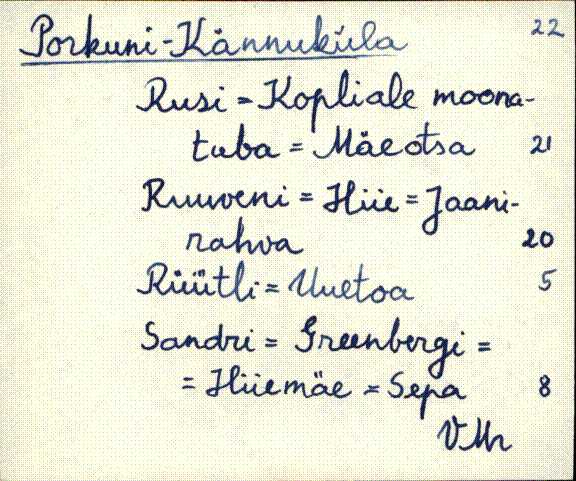 Porkuni-Kännuküla 22
Rusi = Kopliale moona-
tuba = Mäeotsa 21
Ruuveni = Hiie = Jaani-
rahva 20
Rüütli = Uuetoa 5
Sandri = Greenbergi =
= Hiiemäe = Sepa 8
VMr